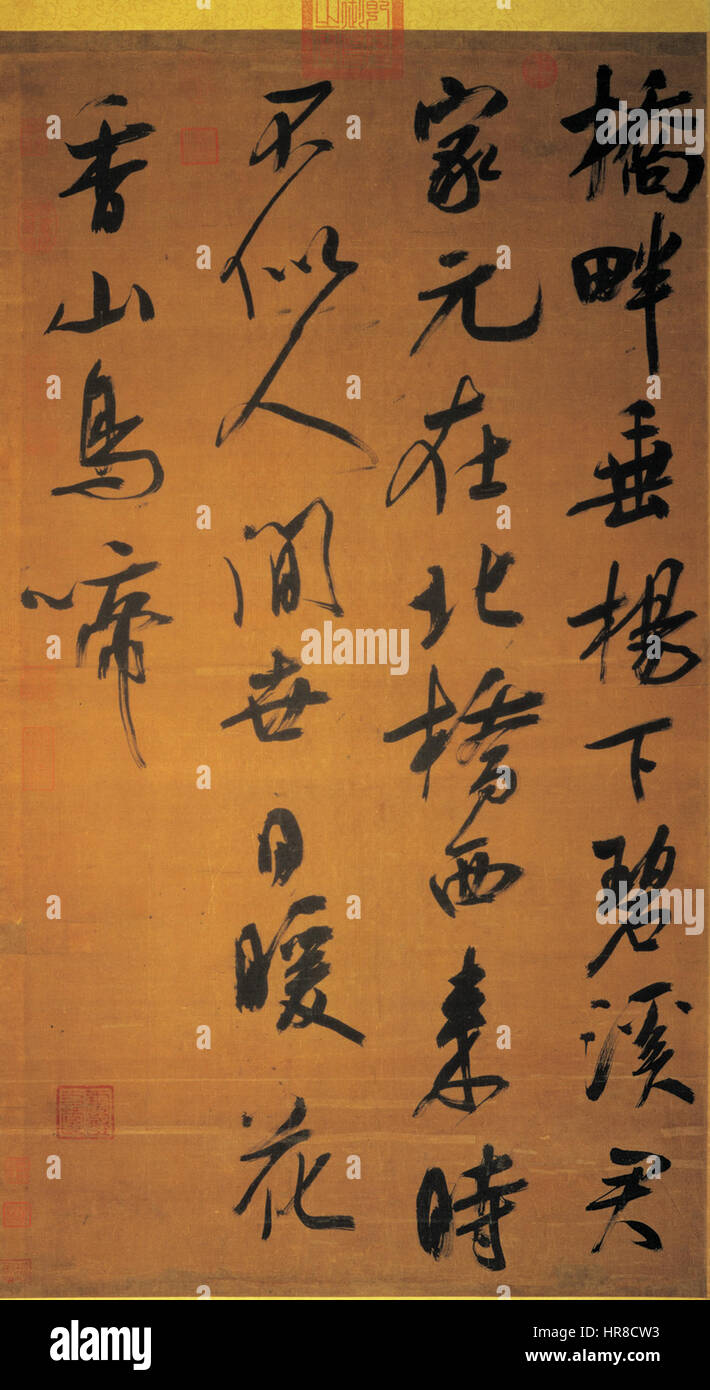 橋畔垂楊下碧溪君
家元在北橋西來時
不似人間世日暖花
香山鳥啼
alamy stock photo
HR8CW3
www.alamy.com